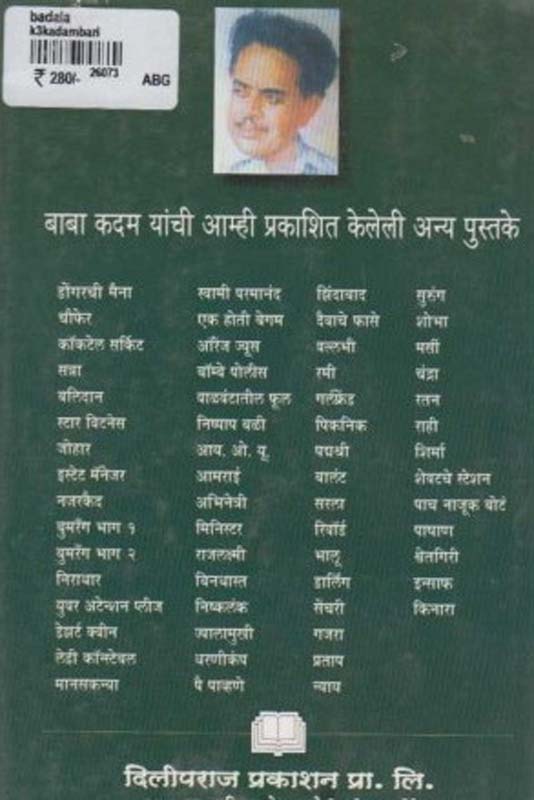 badala
k3kadambari
₹ 280/- 26073 ABG
बाबा कदम यांची आम्ही प्रकाशित केलेली अन्य पुस्तके
डोंगरची मैना
चौफेर
कॉकटेल सर्किट
सत्रा
बलिदान
स्टार विटनेस
जोहार
इस्टेट मॅनेजर
नजरकैद
बुमरँग भाग १
बुमरँग भाग २
निराधार
युवर अटेन्शन प्लीज
डेझर्ट क्वीन
लेडी कॉन्स्टेबल
मानसकन्या
स्वामी परमानंद
एक होती बेगम
ऑरेंज ज्यूस
बॉम्बे पोलीस
वाळवंटातील फूल
निष्पाप बळी
आय. ओ. यू.
आमराई
अभिनेत्री
मिनिस्टर
राजलक्ष्मी
बिनधास्त
निष्कलंक
ज्वालामुखी
धरणीकंप
पै पाव्हणे
झिंदाबाद
दैवाचे फासे
वल्लभी
रमी
गर्लफ्रेंड
पिकनिक
पद्मश्री
वालंट
सरला
रिवॉर्ड
भालू
डार्लिंग
सेंचरी
गजरा
प्रताप
न्याय
सुरुंग
शोभा
मर्सी
चंद्रा
रतन
राही
शिर्मा
शेवटचे स्टेशन
पाच नाजूक बोटं
पाषाण
श्वेतगिरी
इन्साफ
किनारा
दिलीपराज प्रकाशन प्रा. लि.